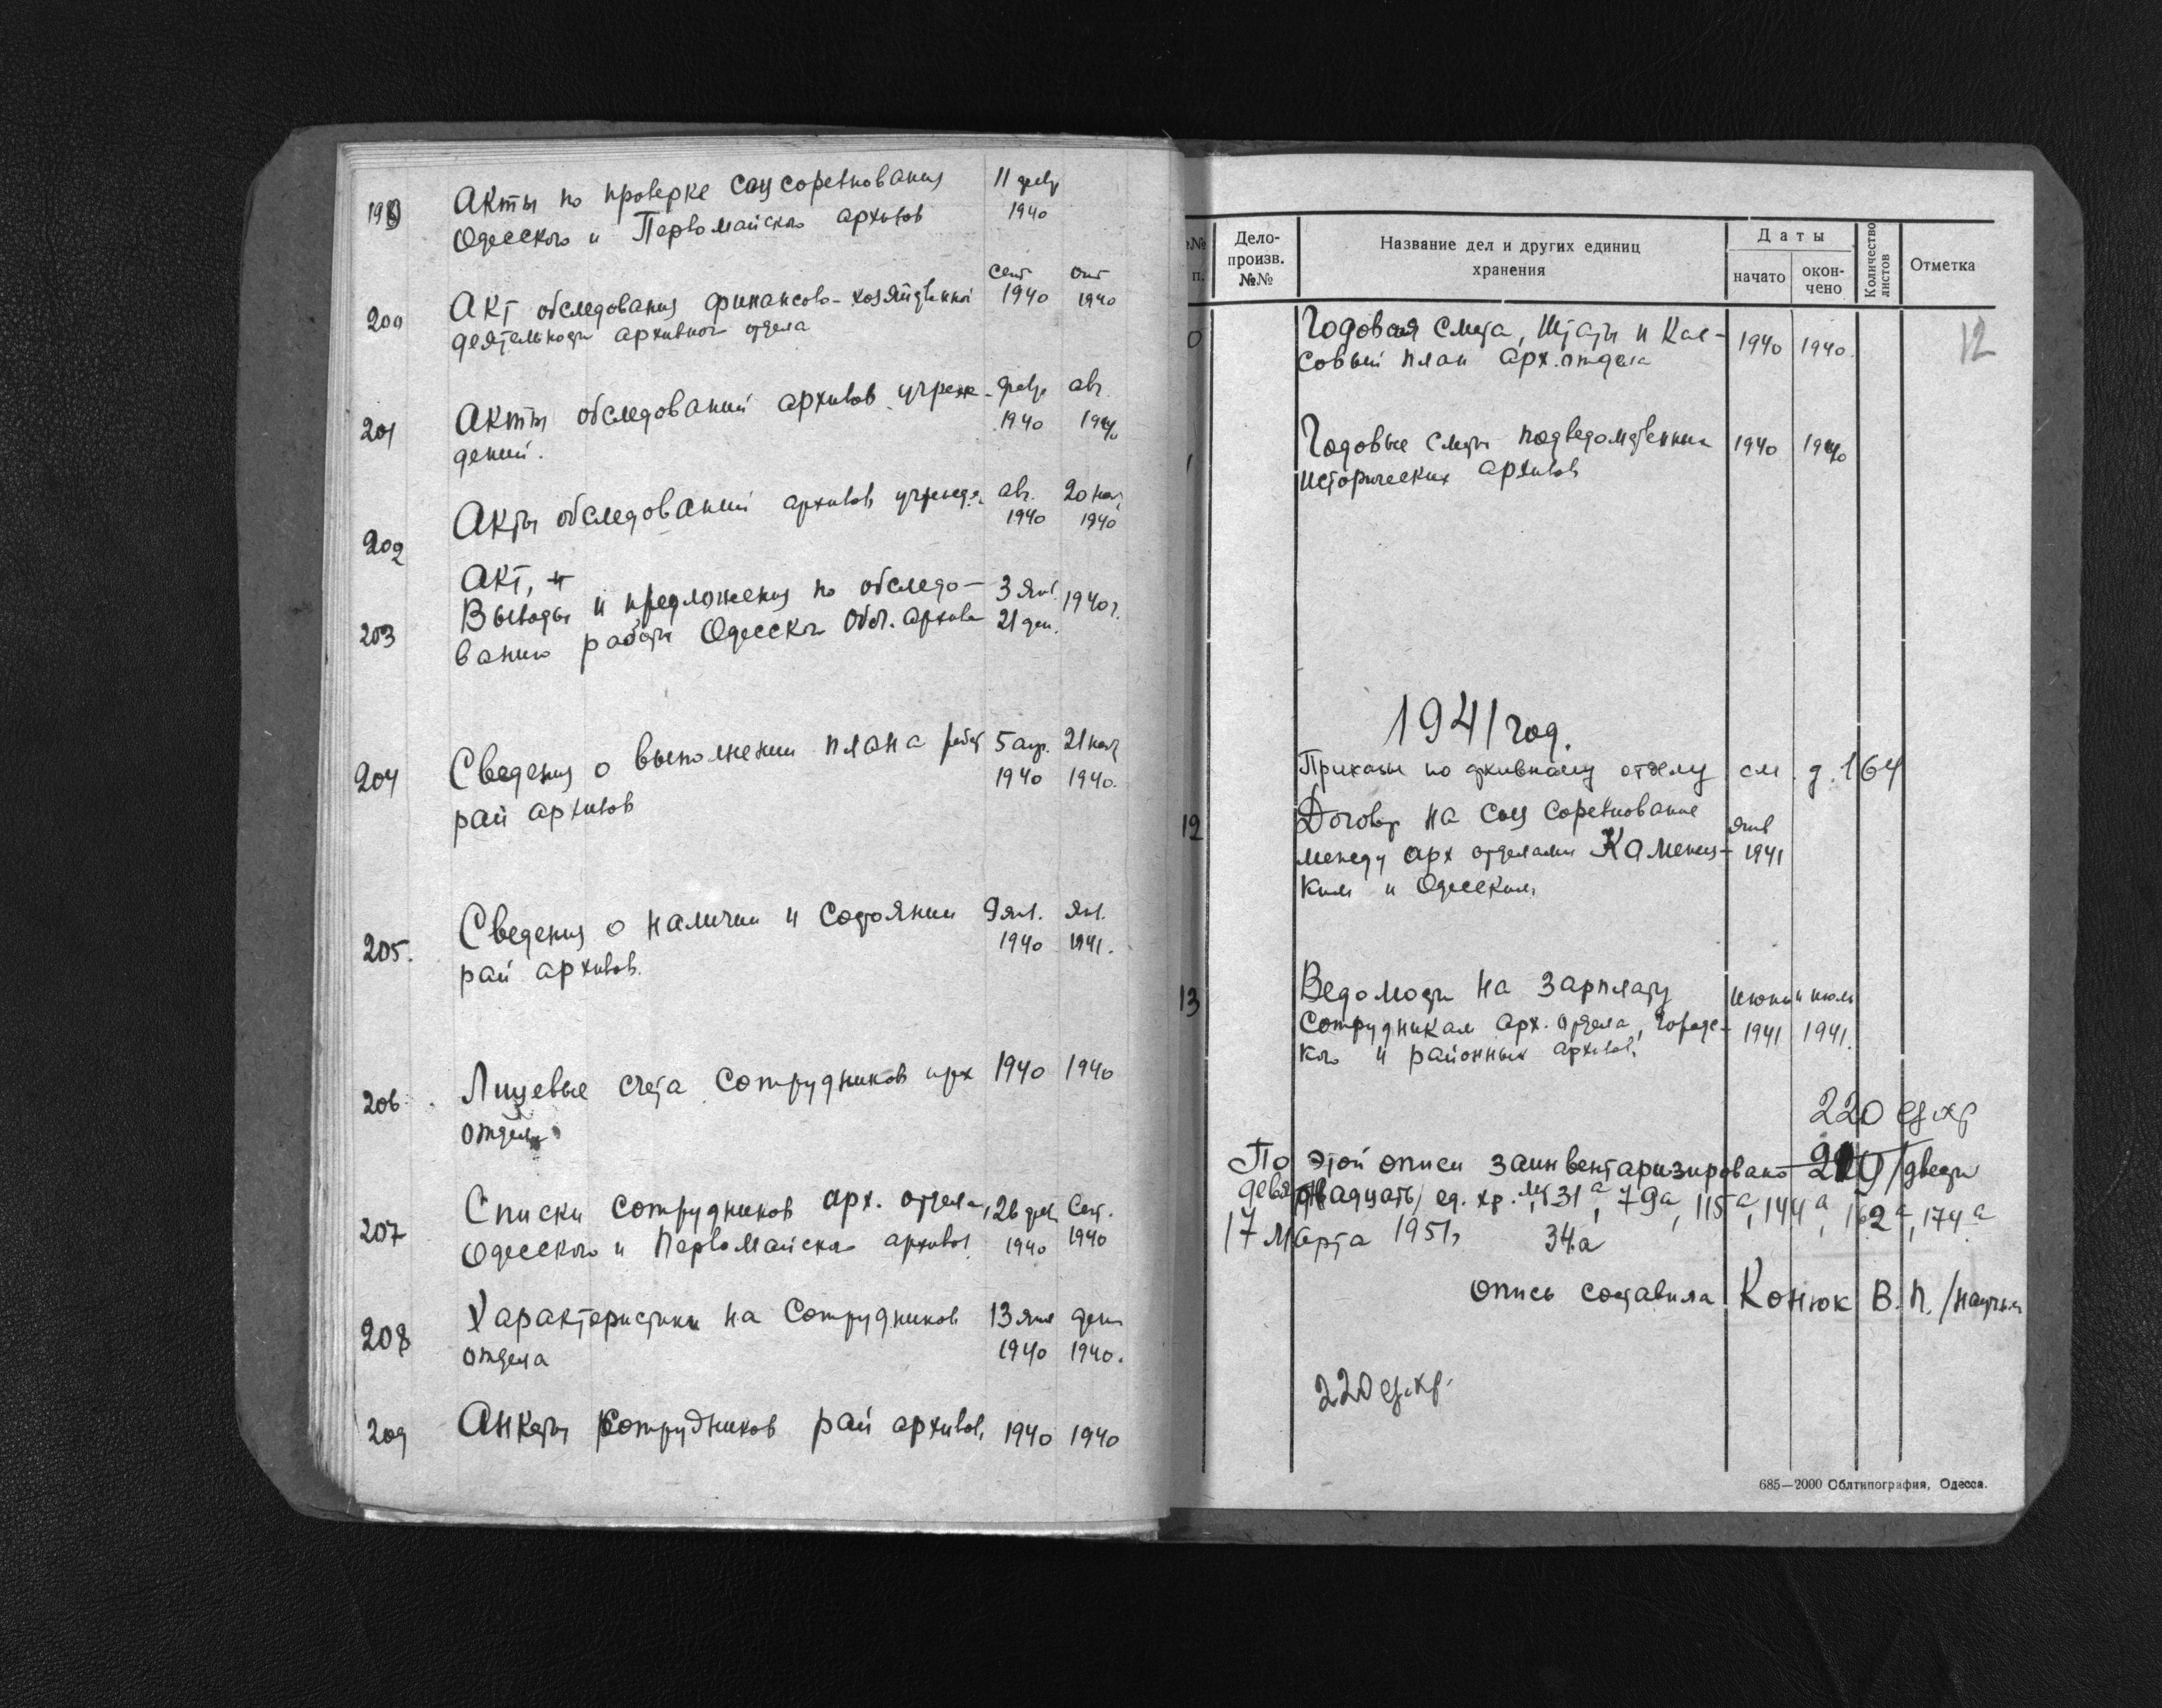 199 Акты по проверке соцсоревнования 11 февр
Одесского и Первомайского архивов 1940
сент окт
200 Акт обследования финансово-хозяйственной 1940 1940
деятельности архивного отдела
201 Акты обследований архивов учреж- февр авг.
дений. 1940 1940
202 Акты обследований архивов учрежд. авг. 20 ноя
1940 1940
Акт,
203 Выводы и предложения по обследо- 3 янв. 1940 г.
ванию работы Одесског Обл. архива 21 дек.
204 Сведения о выполнении плана работ 5 апр. 21 ноя
рай архивов 1940 1940.
205. Сведения о наличии и состоянии 9 янв. янв.
рай архивов. 1940 1941.
206. Лицевые счета сотрудников арх 1940 1940
отдела
207 Списки сотрудников арх. отдела, 26 фев. сент.
Одесского и Первомайского архивов 1940 1940
208 Характеристики на сотрудников 13 янв дек
отдела 1940 1940.
209 Анкеты сотрудников рай архивов, 1940 1940
№№
п.
Дело-
произв.
№№
Название дел и других единиц
хранения
Даты
начато
окон-
чено
Количество
листов
Отметка
0 Годовая смета, штаты и кас- 1940 1940. 12
совый план арх. отдела
1 Годовые сметы подведомственных 1940 1940
исторических архивов
1941 год.
Приказы по архивному отделу см. д. 164
12 Договор на соц соревнование янв
между арх отделами Каменец- 1941
ким и Одесским
13 Ведомости на зарплату июнь июль
сотрудникам арх. отдела, городс- 1941 1941.
кого и районных архивов.
220 ед хр
По этой описи заинвентаризировано 219 /двести
девятнадцать/ ед. хр. 31а, 79а, 115а, 144а, 162а, 174а
17 марта 1951г 34а
опись составила Конюк В. П. /научн
220 ед. хр.
685—2000 Облтипография, Одесса.